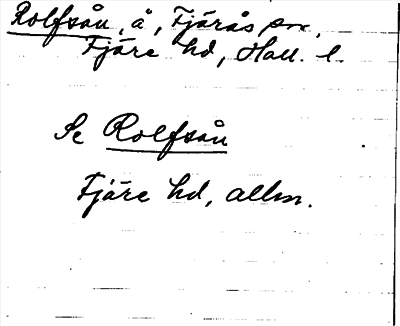 Rolfsån, å, Fjärås sn,
Fjäre hd, Hall. l.
Se Rolfsån
Fjäre hd, allm.